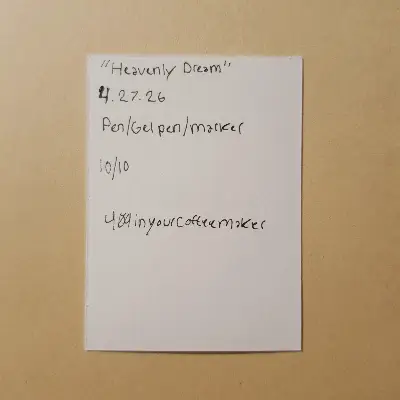 "Heavenly Dream"
4.27.26
Pen/Gel pen/marker
10/10
409inyourcoffeemaker